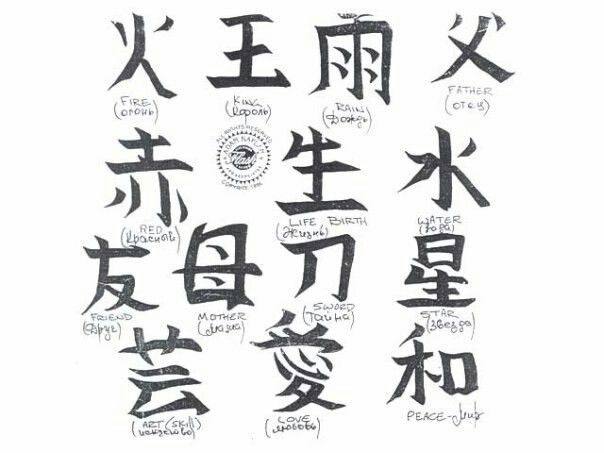 火 王 雨 父
FIRE KING RAIN FATHER
(огонь) (Король) (Дождь) (отец)
ALL RIGHTS RESERVED
Flash
赤 生 水
RED LIFE, BIRTH WATER
(Красный) (Жизнь)
友 母 刀 星
FRIEND MOTHER SWORD STAR
(Друг) (Тайна) (звезда)
芸 愛 和
(ART (SKILL) LOVE PEACE-Мир
(любовь)